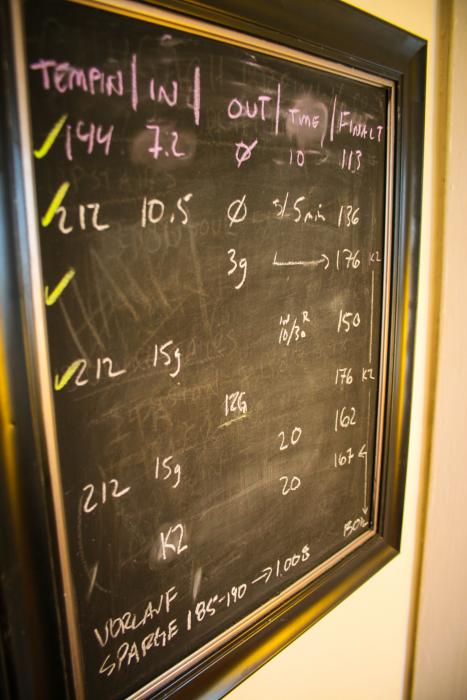 TEMP IN | IN | OUT | TIME | FINAL T
144 7.2 Ø 10 113
212 10.5 Ø 5/5min 136
3g → 176 K2
212 15g IN/R 10/30 150
12G 176 K2
212 15g 20 162
K2 20 167
BOIL
VORLAUF
SPARGE 185-190 → 1.008